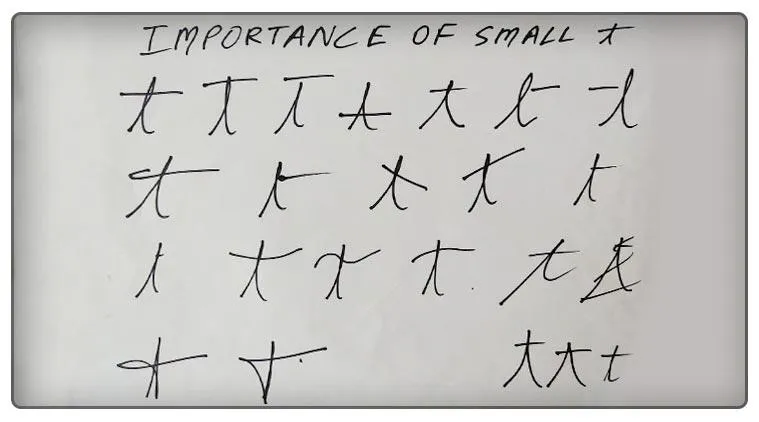 IMPORTANCE OF SMALL t
t t t t t t t
t t t t t
t t t t t t
t t t t t